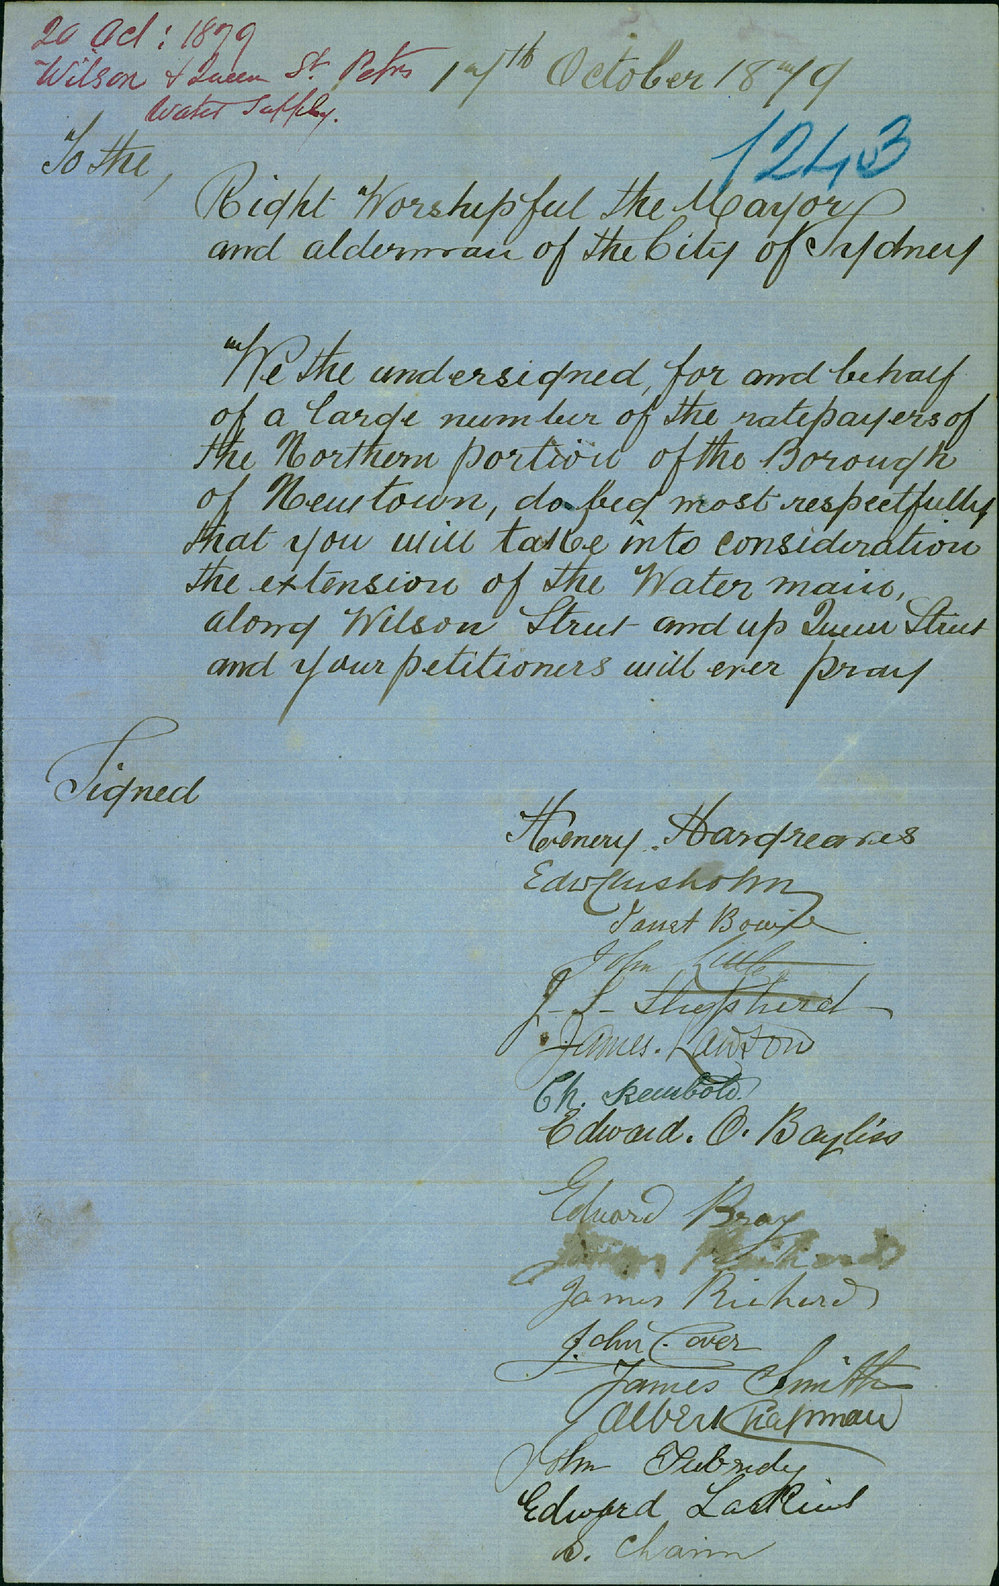 20 Oct: 1879
Wilson & Queen St. Peters
Water Supply.
17th October 1879
1243
To the,
Right Worshipful the Mayor
and alderman of the City of Sydney
We the undersigned, for and behalf
of a large number of the ratepayers of
the Northern portion of the Borough
of Newtown, do beg most respectfully
that you will take into consideration
the extension of the Water main,
along Wilson Street and up Queen Street
and your petitioners will ever pray
Signed
Henery Hargreaves
Edw Chisholm
Janet Bowie
John Little
J. S. Shepherd
James. Lawson
Ch. Rembold
Edward. O. Bayliss
Edward Bray
James Richards
James Richards
John Cover
James Smith
Albert Chapman
John
Edward Laskins
S. Chainn